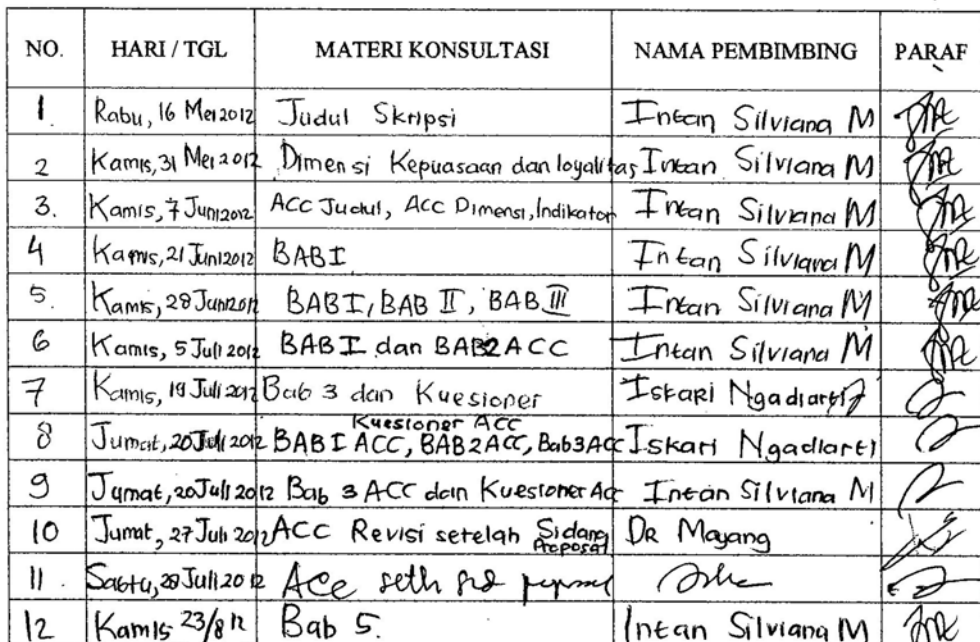 NO. HARI / TGL MATERI KONSULTASI NAMA PEMBIMBING PARAF
1 Rabu, 16 Mei 2012 Judul Skripsi Intan Silviana M
2 Kamis, 31 Mei 2012 Dimensi Kepuasaan dan loyalitas Intan Silviana M
3. Kamis, 7 Juni 2012 ACC Judul, ACC Dimensi, Indikator Intan Silviana M
4 Kamis, 21 Juni 2012 BAB I Intan Silviana M
5. Kamis, 28 Juni 2012 BAB I, BAB II, BAB III Intan Silviana M
6 Kamis, 5 Juli 2012 BAB I dan BAB 2 ACC Intan Silviana M
7 Kamis, 19 Juli 2012 Bab 3 dan Kuesioner Iskari Ngadiarti
Kuesioner ACC
8 Jumat, 20 Juli 2012 BAB I ACC, BAB 2 ACC, Bab 3 ACC Iskari Ngadiarti
9 Jumat, 20 Juli 2012 Bab 3 ACC dan Kuesioner Acc Intan Silviana M
10 Jumat, 27 Juli 2012 ACC Revisi setelah Sidang Proposal DR Mayang
11. Sabtu, 28 Juli 2012 Acc
12 Kamis 23/8 12 Bab 5. Intan Silviana M